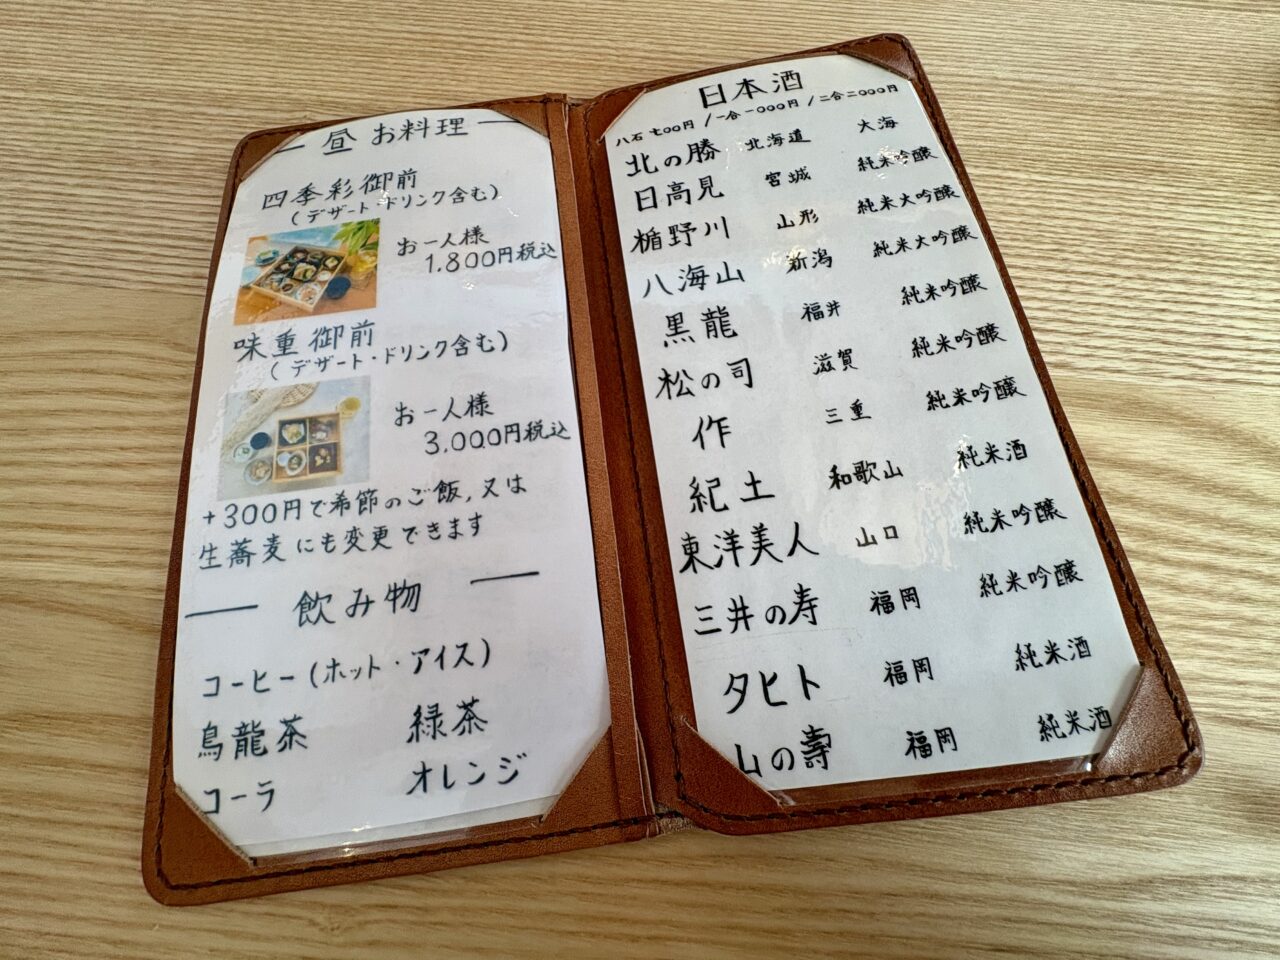 昼 お料理
四季彩御前
(デザート・ドリンク含む)
お一人様
1,800円税込
味重御前
(デザート・ドリンク含む)
お一人様
3,000円税込
+300円で希節のご飯,又は
生蕎麦にも変更できます
飲み物
コーヒー(ホット・アイス)
烏龍茶 緑茶
コーラ オレンジ
日本酒
八石 七00円 / 一合 一000円 / 二合 二000円
北の勝 北海道 大海
日高見 宮城 純米吟醸
楯野川 山形 純米大吟醸
八海山 新潟 純米大吟醸
黒龍 福井 純米吟醸
松の司 滋賀 純米吟醸
作 三重 純米吟醸
紀土 和歌山 純米酒
東洋美人 山口 純米吟醸
三井の寿 福岡 純米吟醸
タヒト 福岡 純米酒
山の壽 福岡 純米酒